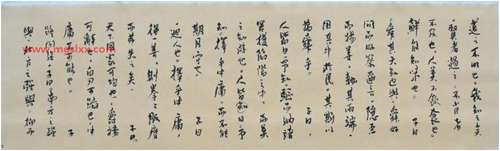 道之不明也我知之矣
賢者過之不肖者
不及也人莫不飲食也
鮮能知味也 子曰
舜其大知也與舜好
問而好察邇言隱惡
而揚善執其兩端
用其中於民其斯以
為舜乎 子曰
人皆曰予知驅而納諸
罟擭陷阱之中而莫
之知辟也人皆曰予
知擇乎中庸而不能
期月守也 子曰
人也擇乎中庸
得一善則拳拳服膺
而弗失之矣 子曰
天下國家可均也爵祿
可辭也白刃可蹈也中
庸不可能也 子
路問強子曰南方之強
與北方之強與抑而
www.meslxx.com